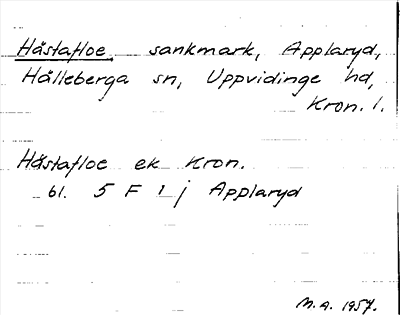 Håstafloe, sankmark, Applaryd,
Hälleberga sn, Uppvidinge hd,
Kron. l.
Håstafloe ek Kron.
bl. 5 F 1 j Applaryd
M.A. 1957.